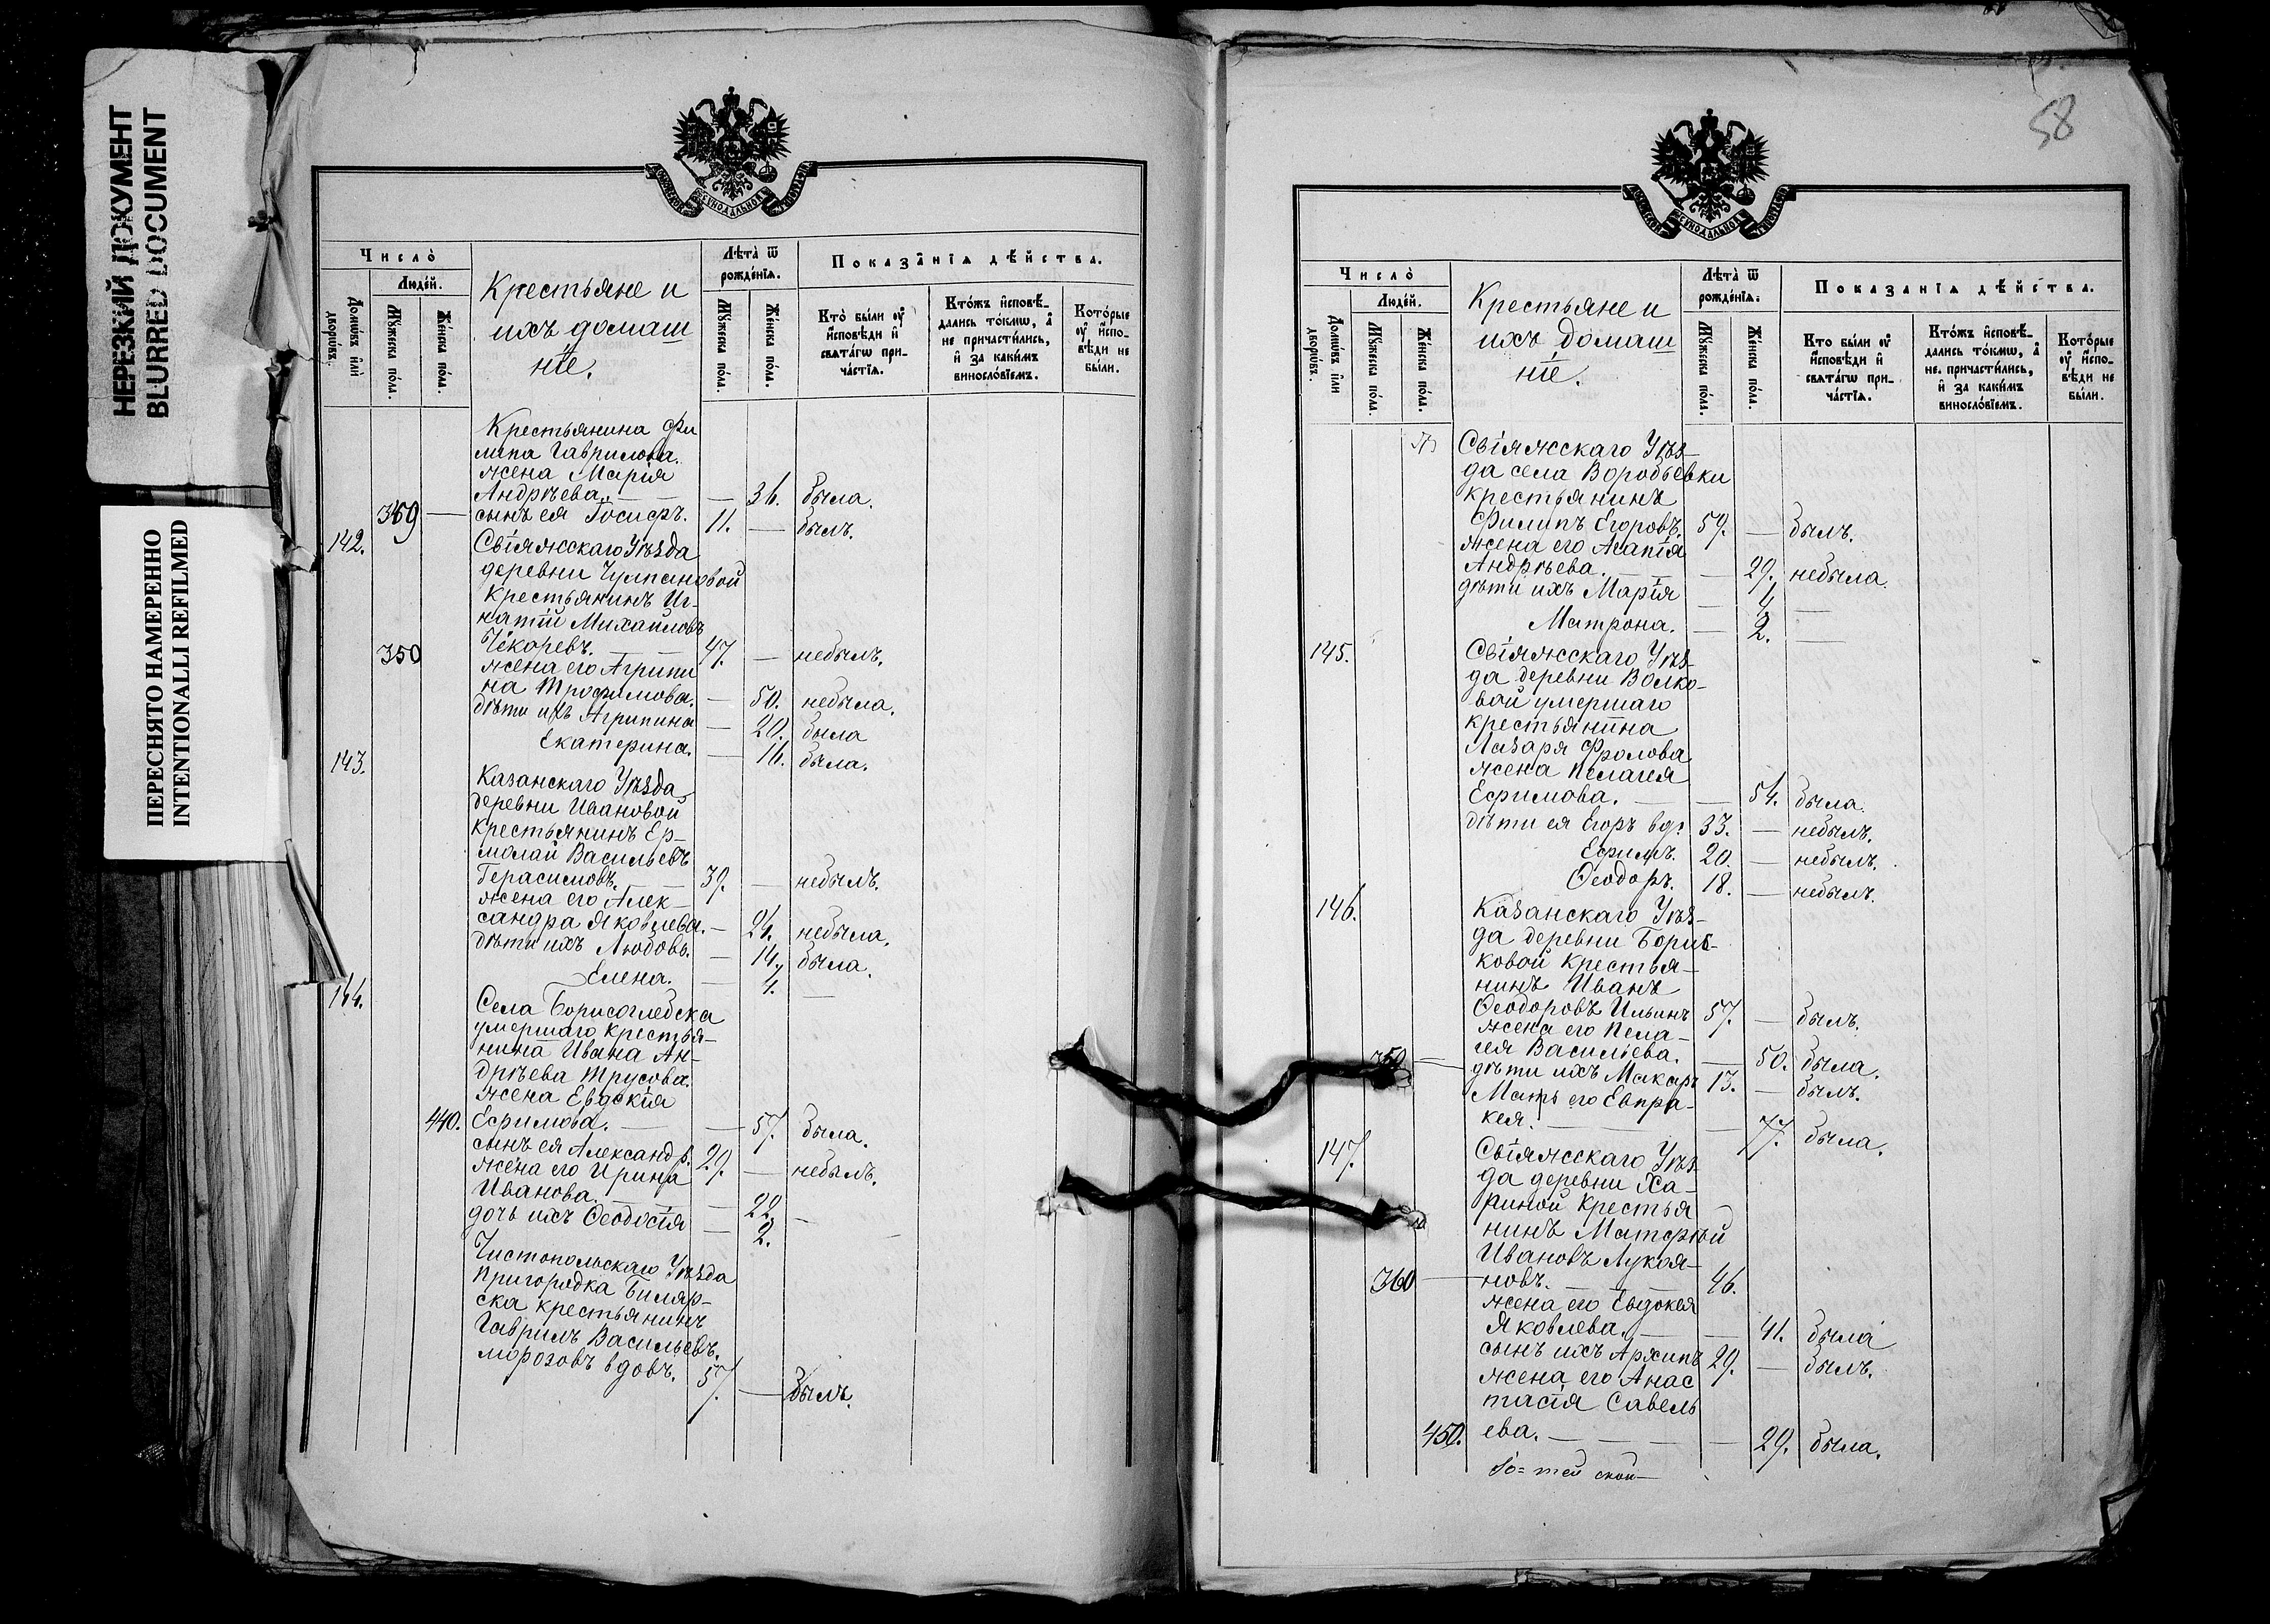 НЕРЕЗКИЙ ДОКУМЕНТ
BLURRED DOCUMENT
ПЕРЕСНЯТО НАМЕРЕННО
INTENTIONALLI REFILMED
Число̀
Людей.
Домѡвъ или дворѡвъ.
Мꙋжеска пола.
Женска пола.
Крестьяне и
ихъ домаш
ніе.
Лѣта ѿ
рожденїѧ.
Мꙋжеска пола.
Женска пола.
Показанїѧ дѣйства.
Кто были ᲂу
исповѣди и
свѧтагѡ при-
частїѧ.
Ктожъ исповѣ-
дались токмѡ, а
не причастились,
и за какимъ
винословїемъ.
Которые
ᲂу испо-
вѣди не
были.
Крестьянина Фи
липа Гаврилова
жена Марія
Андрѣева. — — 36. была.
349 — сынъ ея Іосифъ. 11. — былъ.
142. Свіяжскаго Уѣзда
деревни Чулпановой
крестьянинъ Иг-
натій Михаиловъ
350 Чекоревъ. — 47. — небылъ.
жена его Агрипи
на Трофимова. — 50. небыла.
дѣти ихъ Агрипина — 20. была
Екатерина. — 16. была.
143. Казанскаго Уѣзда
деревни Ивановой
крестьянинъ Ер-
молай Васильевъ
Герасимовъ. — 39. — небылъ.
жена его Алек-
сандра Яковлева. — 24. небыла.
дѣти ихъ Любовь. — 14. была.
Елена. — 4. —
144. Села Борисоглебска
умершаго крестья-
нина Ивана Ан-
дрѣева Трусова.
жена Евдокія
440. Ефимова. — — 57. была.
сынъ ея Александръ. 29. — небылъ.
жена его Ирина
Иванова. — — 22. —
дочь ихъ Ѳеодосія — 2.
Чистопольскаго Уѣзда
Пригородка Биляр-
ска крестьянинъ
Гаврилъ Васильевъ
морозовъ вдовъ. 57. — былъ.
58
Число̀
Людей.
Домѡвъ или дворѡвъ.
Мꙋжеска пола.
Женска пола.
Крестьяне и
ихъ домаш
ніе.
Лѣта ѿ
рожденїѧ.
Мꙋжеска пола.
Женска пола.
Показанїѧ дѣйства.
Кто были ᲂу
исповѣди и
свѧтагѡ при-
частїѧ.
Ктожъ исповѣ-
дались токмѡ, а
не причастились,
и за какимъ
винословїемъ.
Которые
ᲂу испо-
вѣди не
были.
Свіяжскаго Уѣз-
да села Воробьевки
крестьянинъ
Филипъ Егоровъ. 59. — былъ.
жена его Агапія
Андрѣева. — — 29. небыла.
дѣти ихъ Марія — 4. —
Матрона. — 2. —
145. Свіяжскаго Уѣз-
да деревни Волко-
вой умершаго
крестьянина
Лазаря Фролова
жена Пелагея
Ефимова. — — 54. была.
дѣти ея Егоръ вд. 33. — небылъ.
Ефимъ. 20. — небылъ.
Ѳеодоръ. 18. — небылъ.
146. Казанскаго Уѣз-
да деревни Борис-
ковой крестья-
нинъ Иванъ
Ѳеодоровъ Ильинъ 57. — былъ.
жена его Пела-
гея Васильева. — 50. была.
дѣти ихъ Макаръ 13. — былъ.
Мать его Евпра-
кея. — — 77. была.
147. Свіяжскаго Уѣз
да деревни Ха-
риной крестья
нинъ Матфѣй
Ивановъ Лукоя-
360 — новъ. — 46.
жена его Евдокея
Яковлева. — — 41. была
сынъ ихъ Архипъ 29. — былъ.
жена его Анас
тасія Савель
450. ева. — — — 29. была.